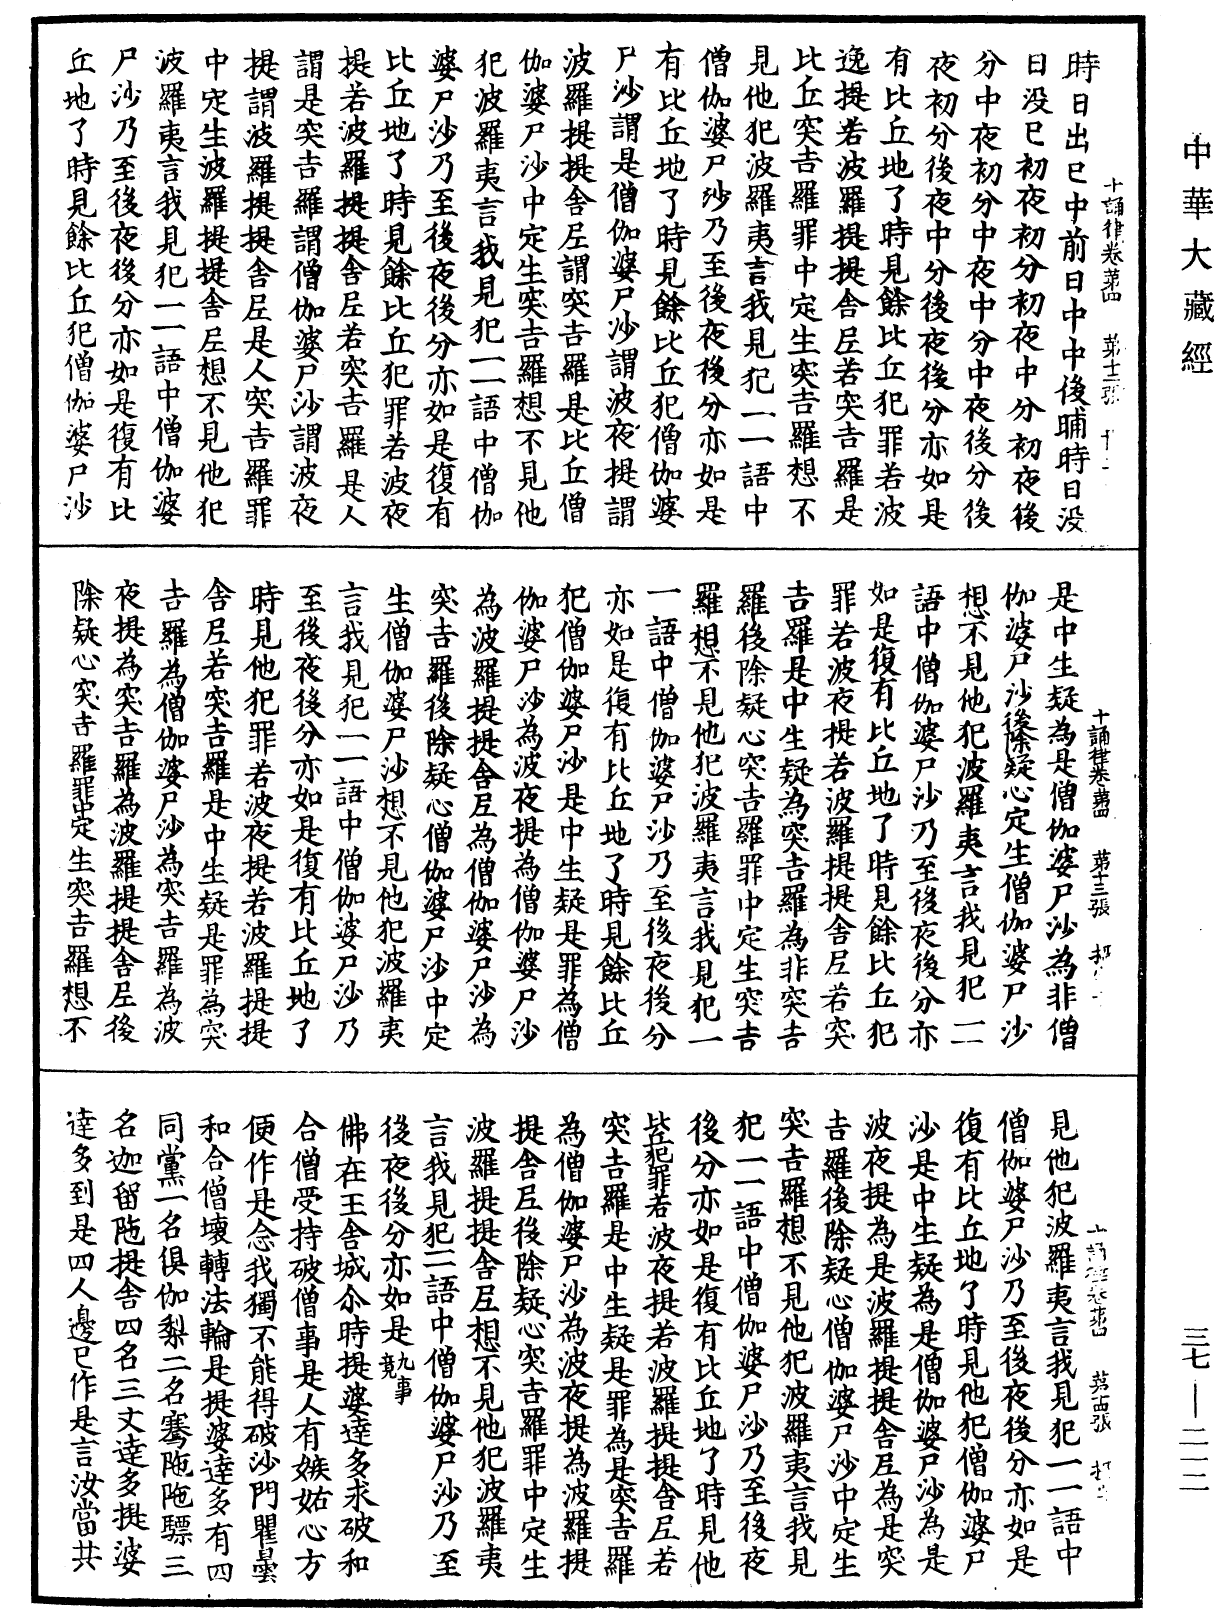 中華大藏經
時日出已中前日中中後晡時日没
日没已初夜初分初夜中分初夜後
分中夜初分中夜中分中夜後分後
夜初分後夜中分後夜後分亦如是
有比丘地了時見餘比丘犯罪若波
逸提若波羅提提舍尼若突吉羅是
比丘突吉羅罪中定生突吉羅想不
見他犯波羅夷言我見犯一一語中
僧伽婆尸沙乃至後夜後分亦如是
有比丘地了時見餘比丘犯僧伽婆
尸沙謂是僧伽婆尸沙謂波夜提謂
波羅提提舍尼謂突吉羅是比丘僧
伽婆尸沙中定生突吉羅想不見他
犯波羅夷言我見犯一一語中僧伽
婆尸沙乃至後夜後分亦如是復有
比丘地了時見餘比丘犯罪若波夜
提若波羅提提舍尼若突吉羅是人
謂是突吉羅謂僧伽婆尸沙謂波夜
提謂波羅提提舍尼是人突吉羅罪
中定生波羅提提舍尼想不見他犯
波羅夷言我見犯一一語中僧伽婆
尸沙乃至後夜後分亦如是復有比
丘地了時見餘比丘犯僧伽婆尸沙
十誦律卷第四　第十二張
是中生疑為是僧伽婆尸沙為非僧
伽婆尸沙後除疑心定生僧伽婆尸沙
想不見他犯波羅夷言我見犯一一
語中僧伽婆尸沙乃至後夜後分亦
如是復有比丘地了時見餘比丘犯
罪若波夜提若波羅提提舍尼若突
吉羅是中生疑為突吉羅為非突吉
羅後除疑心突吉羅罪中定生突吉
羅想不見他犯波羅夷言我見犯一
一語中僧伽婆尸沙乃至後夜後分
亦如是復有比丘地了時見餘比丘
犯僧伽婆尸沙是中生疑是罪為僧
伽婆尸沙為波夜提為僧伽婆尸沙
為波羅提提舍尼為僧伽婆尸沙為
突吉羅後除疑心僧伽婆尸沙中定
生僧伽婆尸沙想不見他犯波羅夷
言我見犯一一語中僧伽婆尸沙乃
至後夜後分亦如是復有比丘地了
時見他犯罪若波夜提若波羅提提
舍尼若突吉羅是中生疑是罪為突
吉羅為僧伽婆尸沙為突吉羅為波
夜提為突吉羅為波羅提提舍尼後
除疑心突吉羅罪中定生突吉羅想不
十誦律卷第四　第十三張
見他犯波羅夷言我見犯一一語中
僧伽婆尸沙乃至後夜後分亦如是
復有比丘地了時見他犯僧伽婆尸
沙是中生疑為是僧伽婆尸沙為是
波夜提為是波羅提提舍尼為是突
吉羅後除疑心僧伽婆尸沙中定生
突吉羅想不見他犯波羅夷言我見
犯一一語中僧伽婆尸沙乃至後夜
後分亦如是復有比丘地了時見他
比丘犯罪若波夜提若波羅提提舍尼若
突吉羅是中生疑是罪為是突吉羅
為僧伽婆尸沙為波夜提為波羅提
提舍尼後除疑心突吉羅罪中定生
波羅提提舍尼想不見他犯波羅夷
言我見犯一一語中僧伽婆尸沙乃至
後夜後分亦如是九事竟
佛在王舍城尒時提婆達多求破和
合僧受持破僧事是人有嫉妬心方
便作是念我獨不能得破沙門瞿曇
和合僧壞轉法輪是提婆達多有四
同黨一名俱伽梨二名騫陁陁驃三
名迦留陁提舍四名三文達多提婆
達多到是四人邊已作是言汝當共
十誦律卷第四　第十四張
三七—二一二